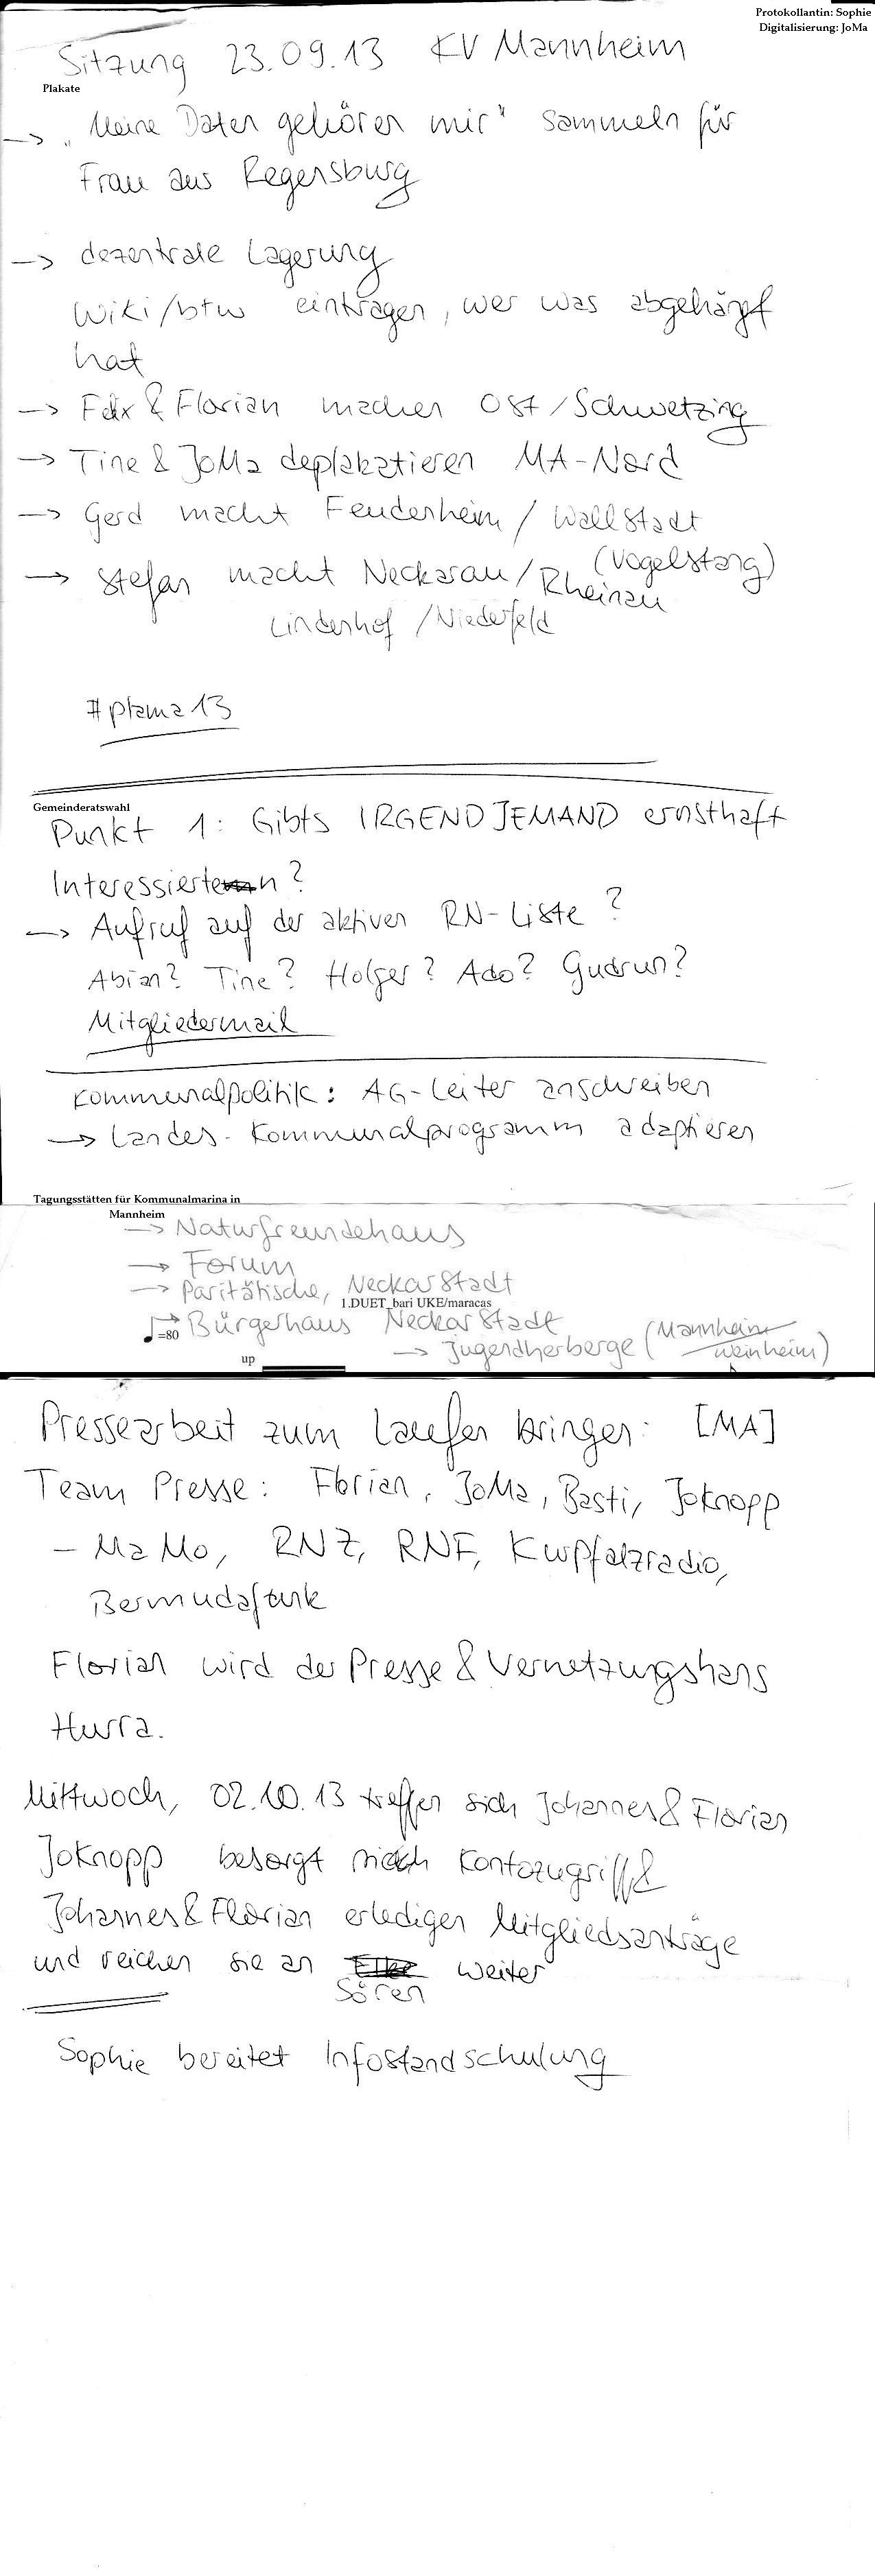 Protokollantin: Sophie
Digitalisierung: JoMa
Sitzung 23.09.13 KV Mannheim
Plakate
→ „Meine Daten gehören mir" sammeln für
Frau aus Regensburg
→ dezentrale Lagerung
Wiki/btw eintragen, wer was abgehängt
hat
→ Felix & Florian machen Ost/Schwetzing
→ Tine & JoMa deplakatieren MA-Nord
→ Gerd macht Feudenheim / Wallstadt
(Vogelstang)
→ Stefan macht Neckarau/Rheinau
Lindenhof /Niederfeld
#plama13
Gemeinderatswahl
Punkt 1: Gibts IRGENDJEMAND ernsthaft
Interessierten?
→ Aufruf auf der aktiven RN-Liste?
Abian? Tine? Holger? Ado? Gudrun?
Mitgliedermail
Kommunalpolitik: AG-Leiter anschreiben
→ Landes-Kommunalprogramm adaptieren
Tagungsstätten für Kommunalmarina in
Mannheim
→ Naturfreundehaus
→ Forum
→ Paritätische, Neckarstadt
1.DUET_bari UKE/maracas
♩=80
→ Bürgerhaus Neckarstadt
→ Jugendherberge (Mannheim
Weinheim)
up
Pressearbeit zum Laufen bringen: [MA]
Team Presse: Florian, JoMa, Basti, JoKnopp
- MaMo, RNZ, RNF, Kurpfalzradio,
Bermudafunk
Florian wird der Presse & Vernetzungshans
Hurra.
Mittwoch, 02.10.13 treffen sich Johannes & Florian
JoKnopp besorgt Kontozugriff &
Johannes & Florian erledigen Mitgliedsanträge
und reichen sie an weiter
Sören
Sophie bereitet Infostandschulung